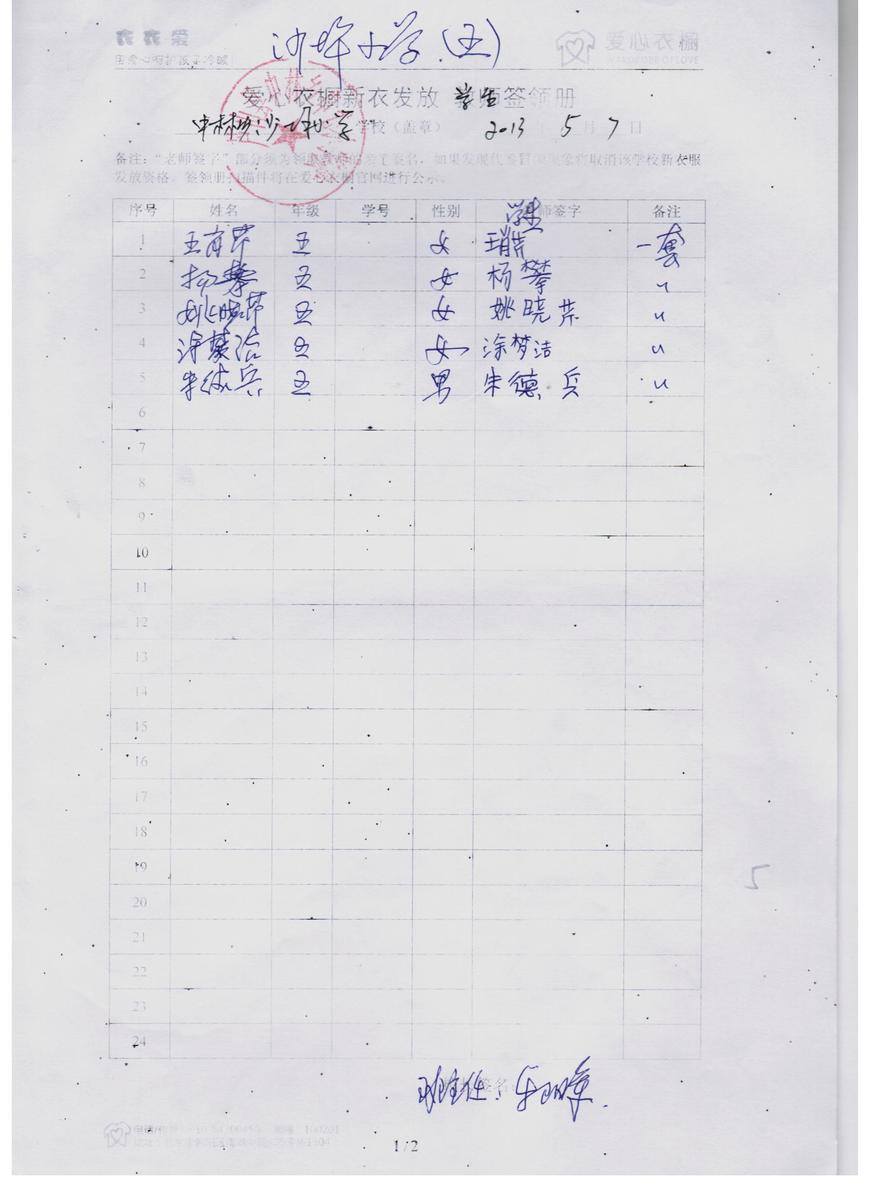 衣衣爱 爱心衣橱
沙坪小学(五) WARDROBE OF LOVE
爱心衣橱新衣发放 学生签领册
中林乡沙坪小学 学校(盖章) 2013 年 5 月 7 日
备注:"老师签字"部分须为领取老师的亲手签名,如果发现代签冒领现象将取消该学校新衣服
发放资格。签领册扫描件将在爱心衣橱官网进行公示。
序号 姓名 年级 学号 性别 学生 师签字 备注
1 王肖芹 五 女 王肖芹 一套
2 杨攀 五 女 杨攀 〃
3 姚晓芹 五 女 姚晓芹 〃
4 涂梦洁 五 女 涂梦洁 〃
5 朱德兵 五 男 朱德兵 〃
6
7
8
9
10
11
12
13
14
15
16
17
18
19
20
21
22
23
24
5
班主任:
1/2